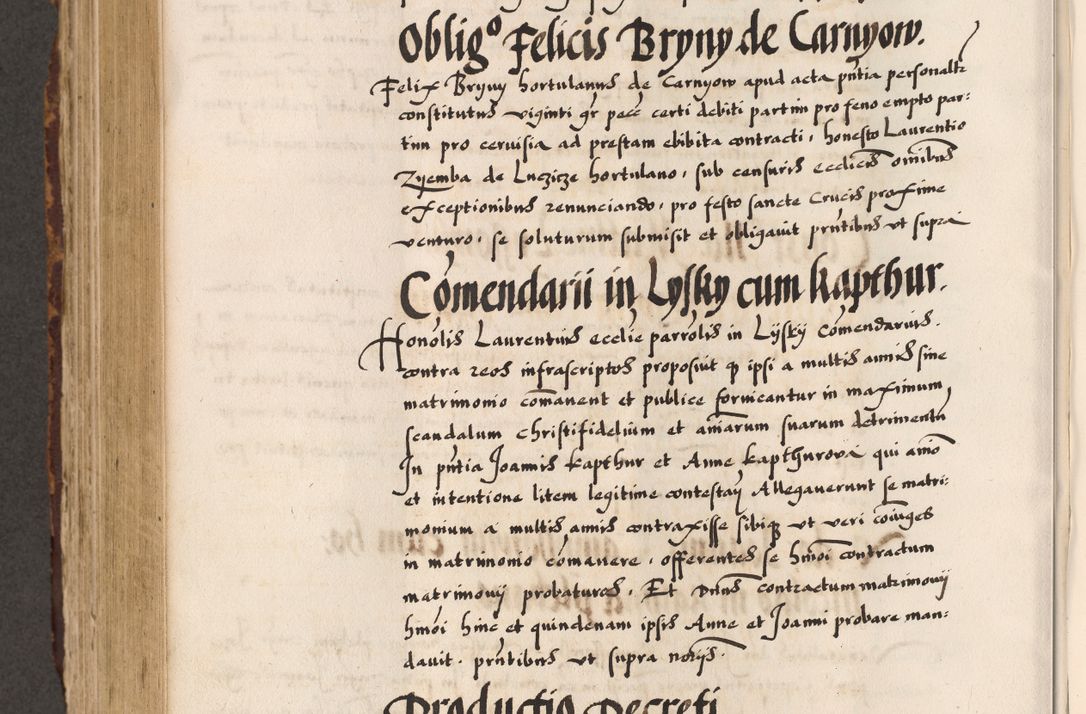 Obligº Felicis Bryny de Carnyow.
Felix Bryny hortulanus de Carnyow apud acta pn̄tia personalr
constitutus viginti gr̄ pecc̄ certi debiti partim pro feno empto par:
tim pro cervisia ad prestam ebibita contracti, honesto Laurentio
Zyemba de Luczicze hortulano, sub censuris ecclicis om̄ibus
exceptionibus renunciando, pro festo sancte Crucis proxime
venturo, se soluturum submisit et obligavit pn̄tibus vt supra
Com̄endarii in Lysky cum kapthur.
Honolis Laurentius ecclie parrolis in Lysky Com̄endarius.
contra reos infrascriptos proposuit q̄ ipsi a multis annis sine
matrimonio com̄anent et publice fornicantur in maximum
scandalum christifidelium et aīarum suarum detrimentū
In pn̄tia Joannis kapthur et Anne kapthurova qui aīo
et intentione litem legitime contestan̄ Allegaverunt se matri:
monium a multis annis contraxisse sibiq̄ vt veri coīuges
in matrimonio com̄anere, offerentes se hm̄oi contractum
matrimonij probaturos, Et Dn̄us contractum matrimonij
hm̄oi hinc et quindenam ipsis Anne et Joanni probare man:
davit. pn̄tibus vt supra norijs.
Productio Decreti